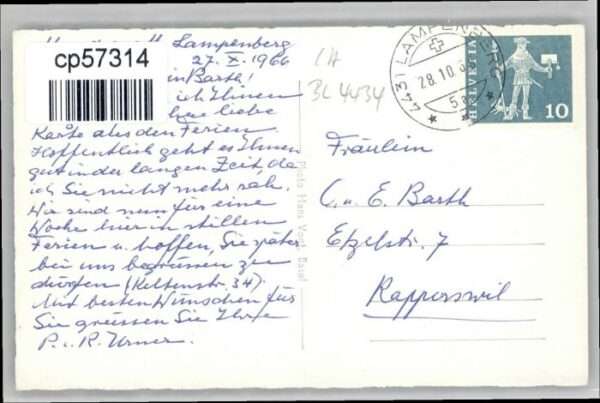 cp57314
Lampenberg
27. X. 1966
Barth!
ich Ihnen
liebe
Karte aus den Ferien.
Hoffentlich geht es Ihnen
gut in der langen Zeit, da
ich Sie nicht mehr sah.
Wir sind nun für eine
Woche hier in stillen
Ferien u. hoffen, Sie später
bei uns begrüssen zu
dürfen (Keltenstr. 34).
Mit besten Wünschen für
Sie grüssen Sie Ihre
P. u. R. Urner.
Photo Hans Vogt, Basel
CH
BL 4434
4431 LAMPENBERG
28.10.6
HELVETIA
10
Fräulein
C. u. E. Barth
Etzelstr. 7
Rapperswil